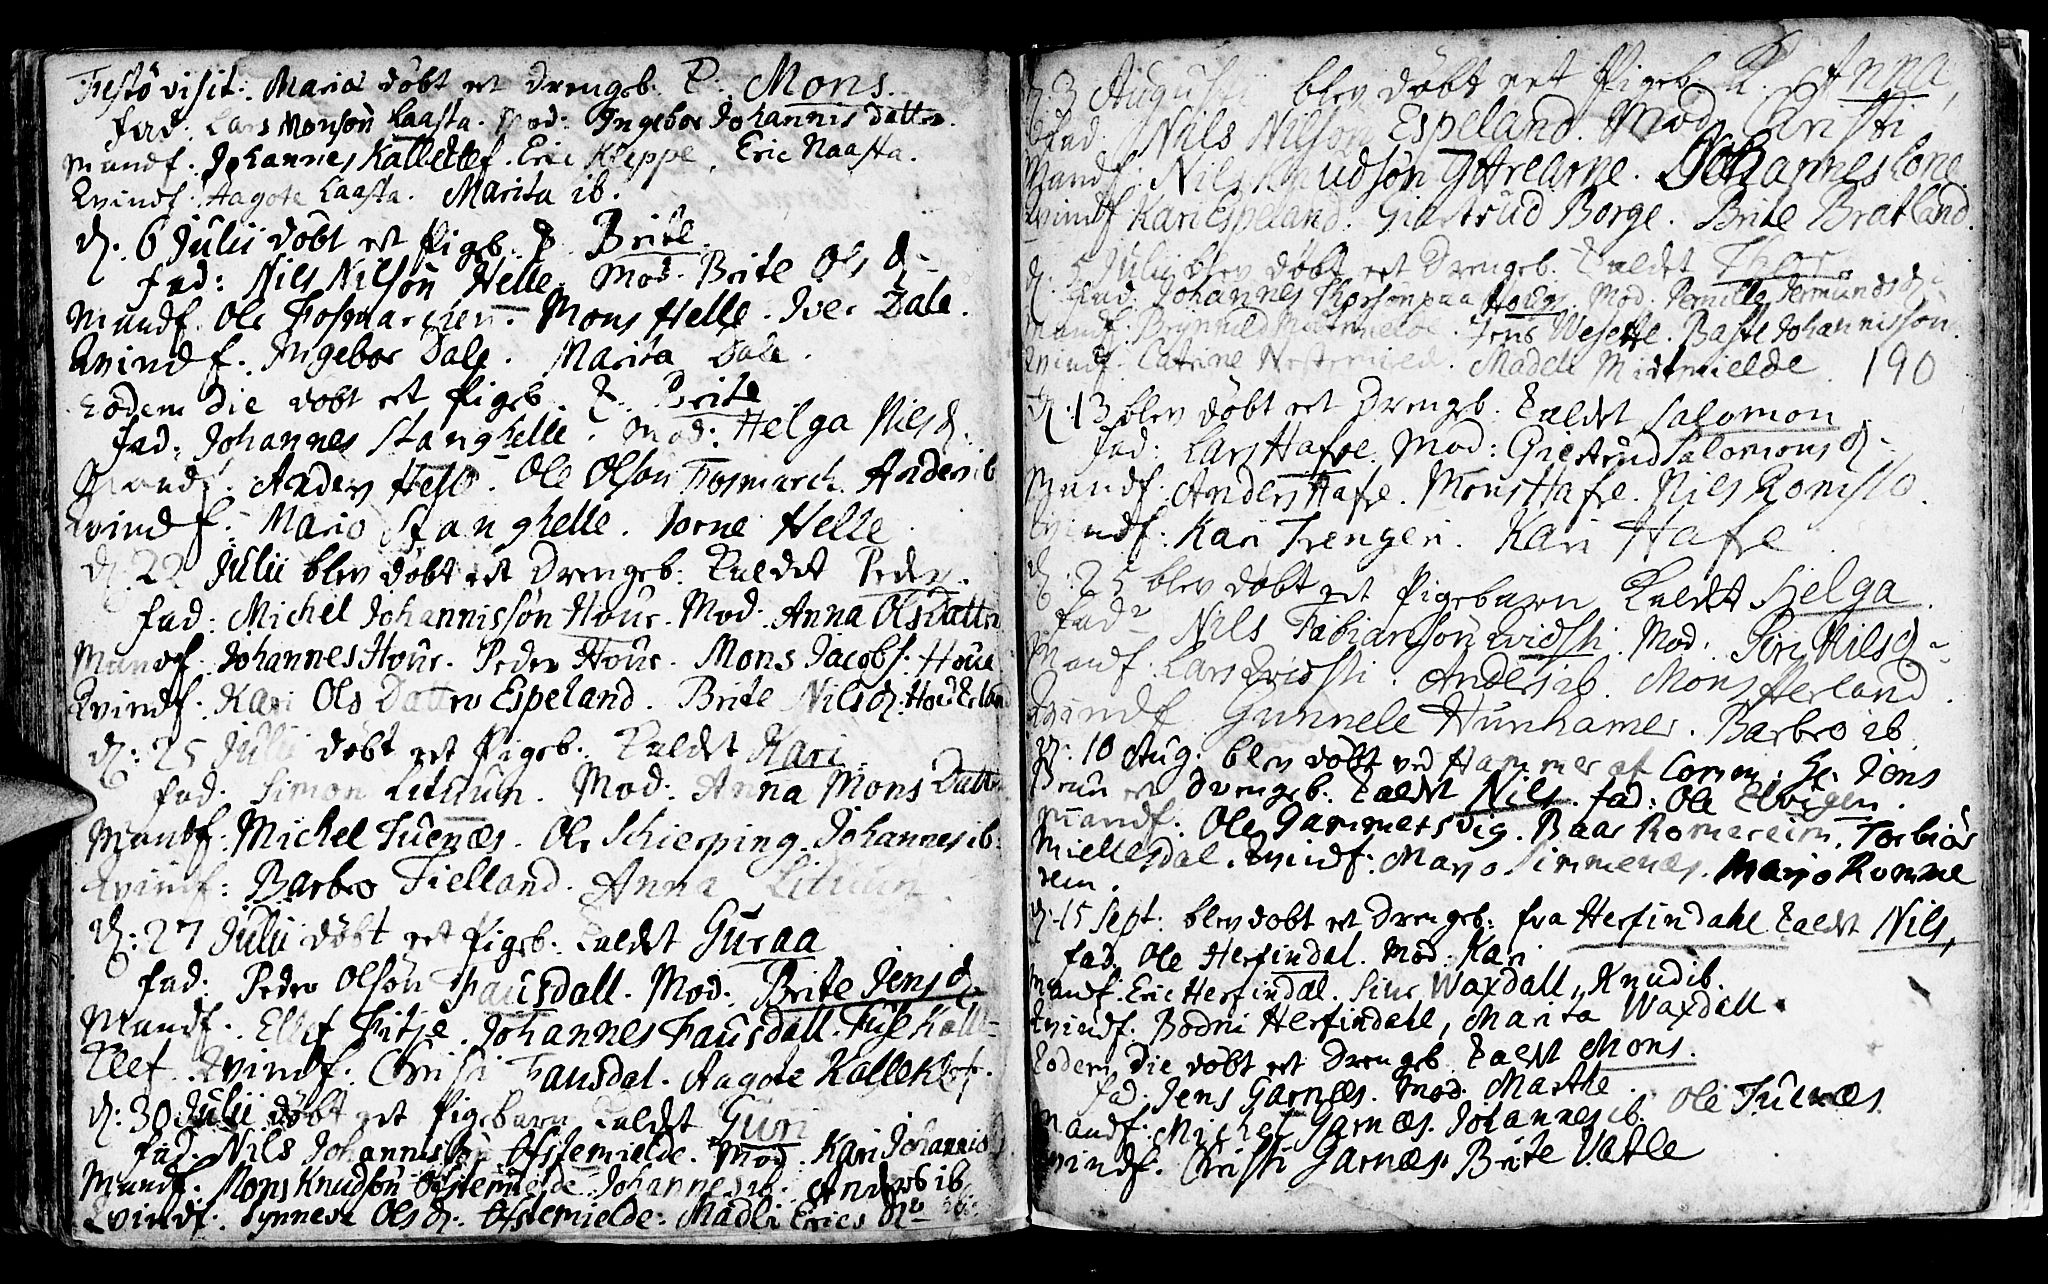 Festo visit: Mariæ döbt et Drengeb. K. Mons.
Fad: Lars Monsön Laasta. Mod: Ingebor Johannis Datter.
Mandf. Johannes Kalleklef. Eric Kleppe, Eric Naasta.
Kvindf. Aagote Laasta. Marita ib.
d. 6 Julii döbt et Pigeb. K. Brite.
Fad: Nils Nilsön Helle. Mod. Brite Ols d.
Mandf. Ole Fosmarchen. Mons Helle. Iver Dale.
Kvindf. Ingebor Dale. Marita Dale.
Eodem die döbt et Pigeb. K. Brite
Fad: Johannes Stanghelle. Mod: Helga Nilsd.
Mandf. Anders Helle. Ole Olsön Fosmarch. Anders ib
Kvindf. Mario Stanghelle. Jorne Helle.
d. 22 Julii blev döbt et Drengeb: Kaldet Peder.
Fad: Michel Johannissön Houe. Mod. Anna Olsdatter
Mandf. Johannes Houe. Peder Houe. Mons Jacobs. Houe
Kvindf. Kari Ols Datter Espeland. Brite Nilsd.
d: 25 Julii döbt et Pigeb. Kaldet Kari.
Fad. Simon Lituun. Mod: Anna Mons Datter
Mandf. Michel Tuenæs. Ole Schierping. Johannes ib.
Kvindf: Barbro Fielland. Anna Lituun
d: 27 Julii döbt et Pigeb. Kaldet Guraa
Fad. Peder Olsön Fausdall. Mod: Brite Jensd.
Mandf. Ellef Fitje. Johannes Fausdall. Kalle-
klef. Kvindf. Christi Fausdal. Aagote Kalleklef.
d: 30 Julii döbt et Pigebarn Kaldet Guri
Fad. Nils Johannissön Östemielde. Mod. Kari Johannis
Mandf. Mons Knudsön Östemielde. Johannes ib. Anders ib
Kvindf. Synneve Ols d. Östemielde. Madli Erics d.
d. 3 Augusti blev döbt et Pigeb. K. Anna,
Fad. Nils Nilsön Espeland. Mod. Christi
Mandf. Nils Knudsön Ytrearne. Johannes Lone
Kvindf Kari Espeland. Giertrud Borge. Brite Bratland.
d. 5 Julii blev döbt et Drengeb. Kaldet Thor
Fad. Johannes Thorsön paa Mod. Pernille
Mandf. Brynnild Jens Wesette. Baste Johannissön
Kvindf. Catrine Madele Midtmielde. 190
d. 13 blev döbt et Drengeb. Kaldet Salomon.
Fad: Lars Hafre. Mod: Giertrud Salomons d.
Mandf. Anders Hafre. Mons Hafre. Nils Romslo.
Kvindf. Kari Trengeri. Kari Hafre
d: 25 blev döbt et Pigebarn Kaldet Helga.
Fad Nils Fabiansön Qvidsti. Mod. Siri Nilsd.
Mandf. Lars Qvidsti. Anders ib. Mons Herland.
Kvindf. Gunnele Hunhamer. Barbro ib.
d. 10 Aug: blev döbt ved Hammer af Comm: Hr. Jens
Bruu et Drengeb. Kaldet Nils. Fad: Ole Elvigen.
Mandf. Ole Gammersvig. Baar Romereim. Torbiör
Mielkesdal. Kvindf. Maro Simmenæs. Marjo Romme
reim.
d. 15 Sept. blev döbt et Drengeb: fra Herfindahl Kaldet Nils,
Fad. Ole Herfindal. Mod. Kari
Mandf. Eric Herfindal. Siur Waxdall, Knud ib.
Kvindf. Bodni Herfindahl, Marita Waxdall.
Eodem die döbt et Drengeb. Kaldet Mons.
Fad. Jens Garnæs. Mod. Marthe.
Mandf. Michel Garnæs. Johannes ib. Ole Tuenæs.
Kvindf. Christi Garnæs. Brite Vatle